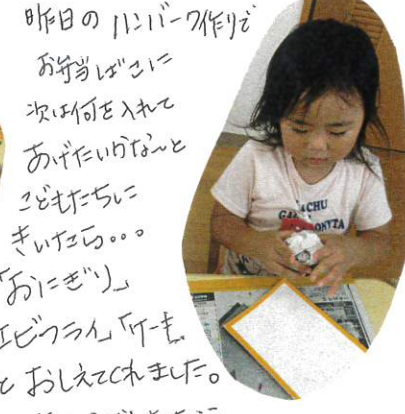 昨日のハンバーグ作りで
お弁当ばこに
次は何を入れて
あげたいかな〜と
こどもたちに
きいたら。。。
「おにぎり」
エビフライ」「ケーキ
と おしえてくれました。